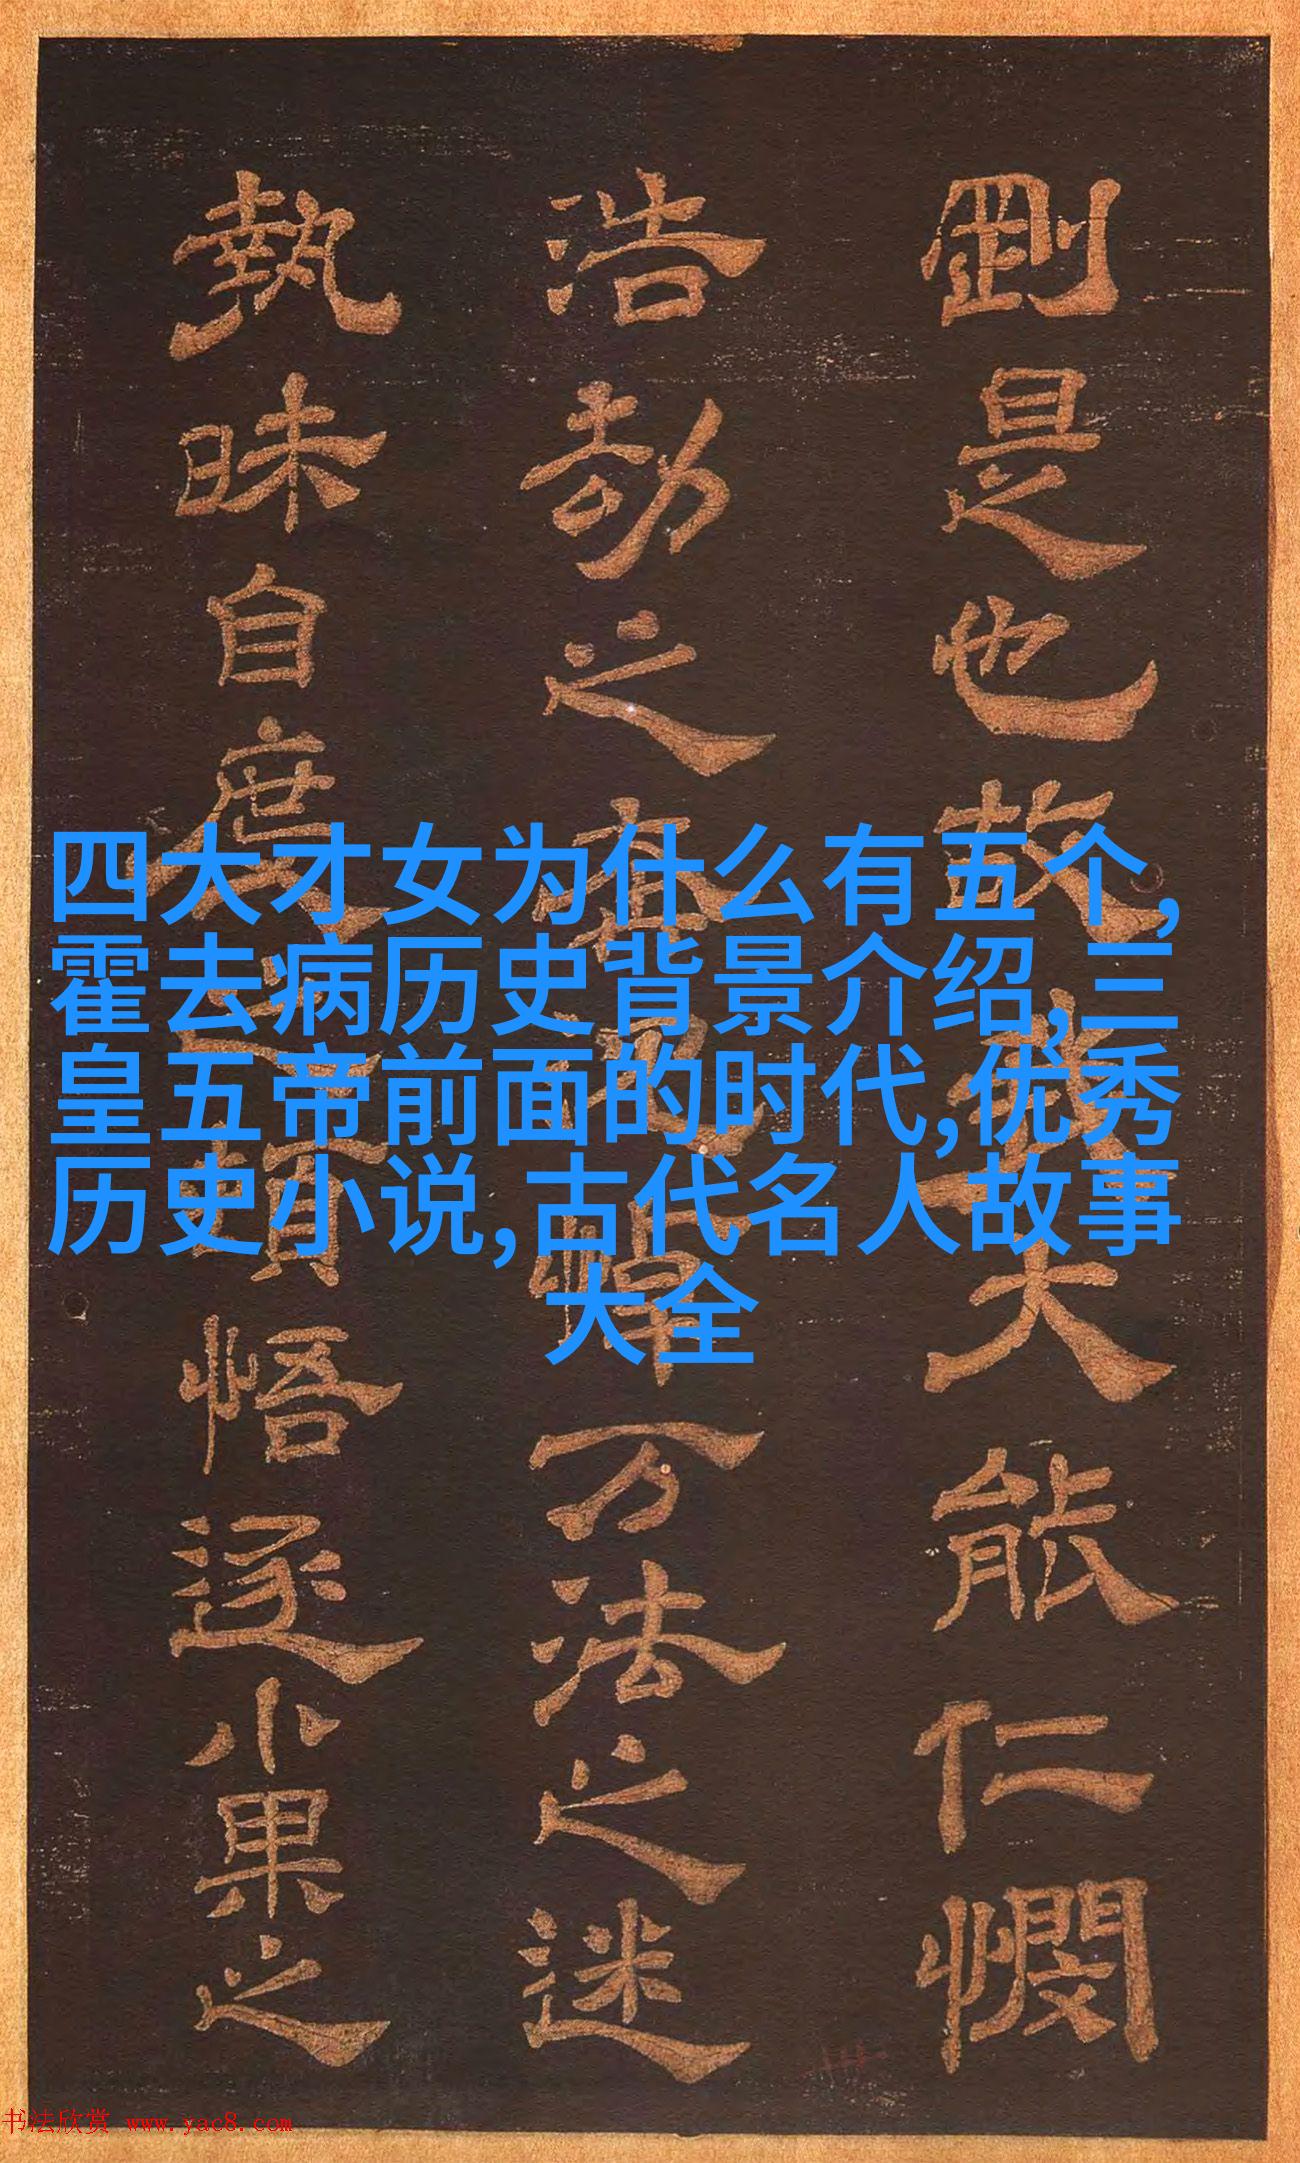 四大才女为什么有五个,
霍去病历史背景介绍,三
皇五帝前面的时代,优秀
历史小说,古代名人故事
大全
剛是也故我大能仁憫
浩劫之万法之迷
執昧自度頓悟逐小果之
书法欣赏 www.yac8.com